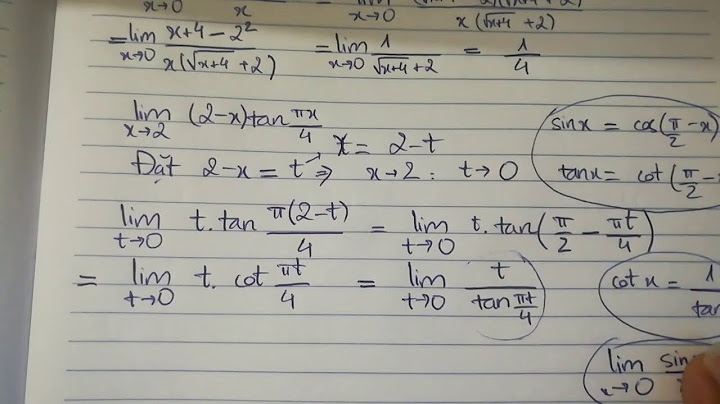 x→0 x x→0 x(√x+4 +2)
= lim x→0 x+4 - 2² / x(√x+4 +2) = lim x→0 1 / √x+4 +2 = 1/4
lim x→2 (2-x)tan πx/4
sinx = cos(π/2 - x)
x = 2-t
Đặt 2-x = t ⇒ x→2 : t→0
tanx = cot(π/2 -
lim t→0 t.tan π(2-t)/4 = lim t→0 t.tan(π/2 - πt/4)
= lim t→0 t. cot πt/4 = lim t→0 t / tan πt/4
cot x = 1 / tan
lim x→0 sin